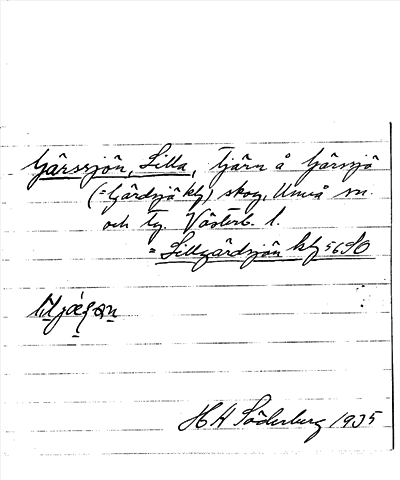 Gärssjön, Lilla, tjärn å Gärssjö
(=Gärdsjö kbl) skog, Umeå sn.
och tg. Västerb. l.
= Lillgärdsjön kbl 56 SO
H H Söderberg 1935